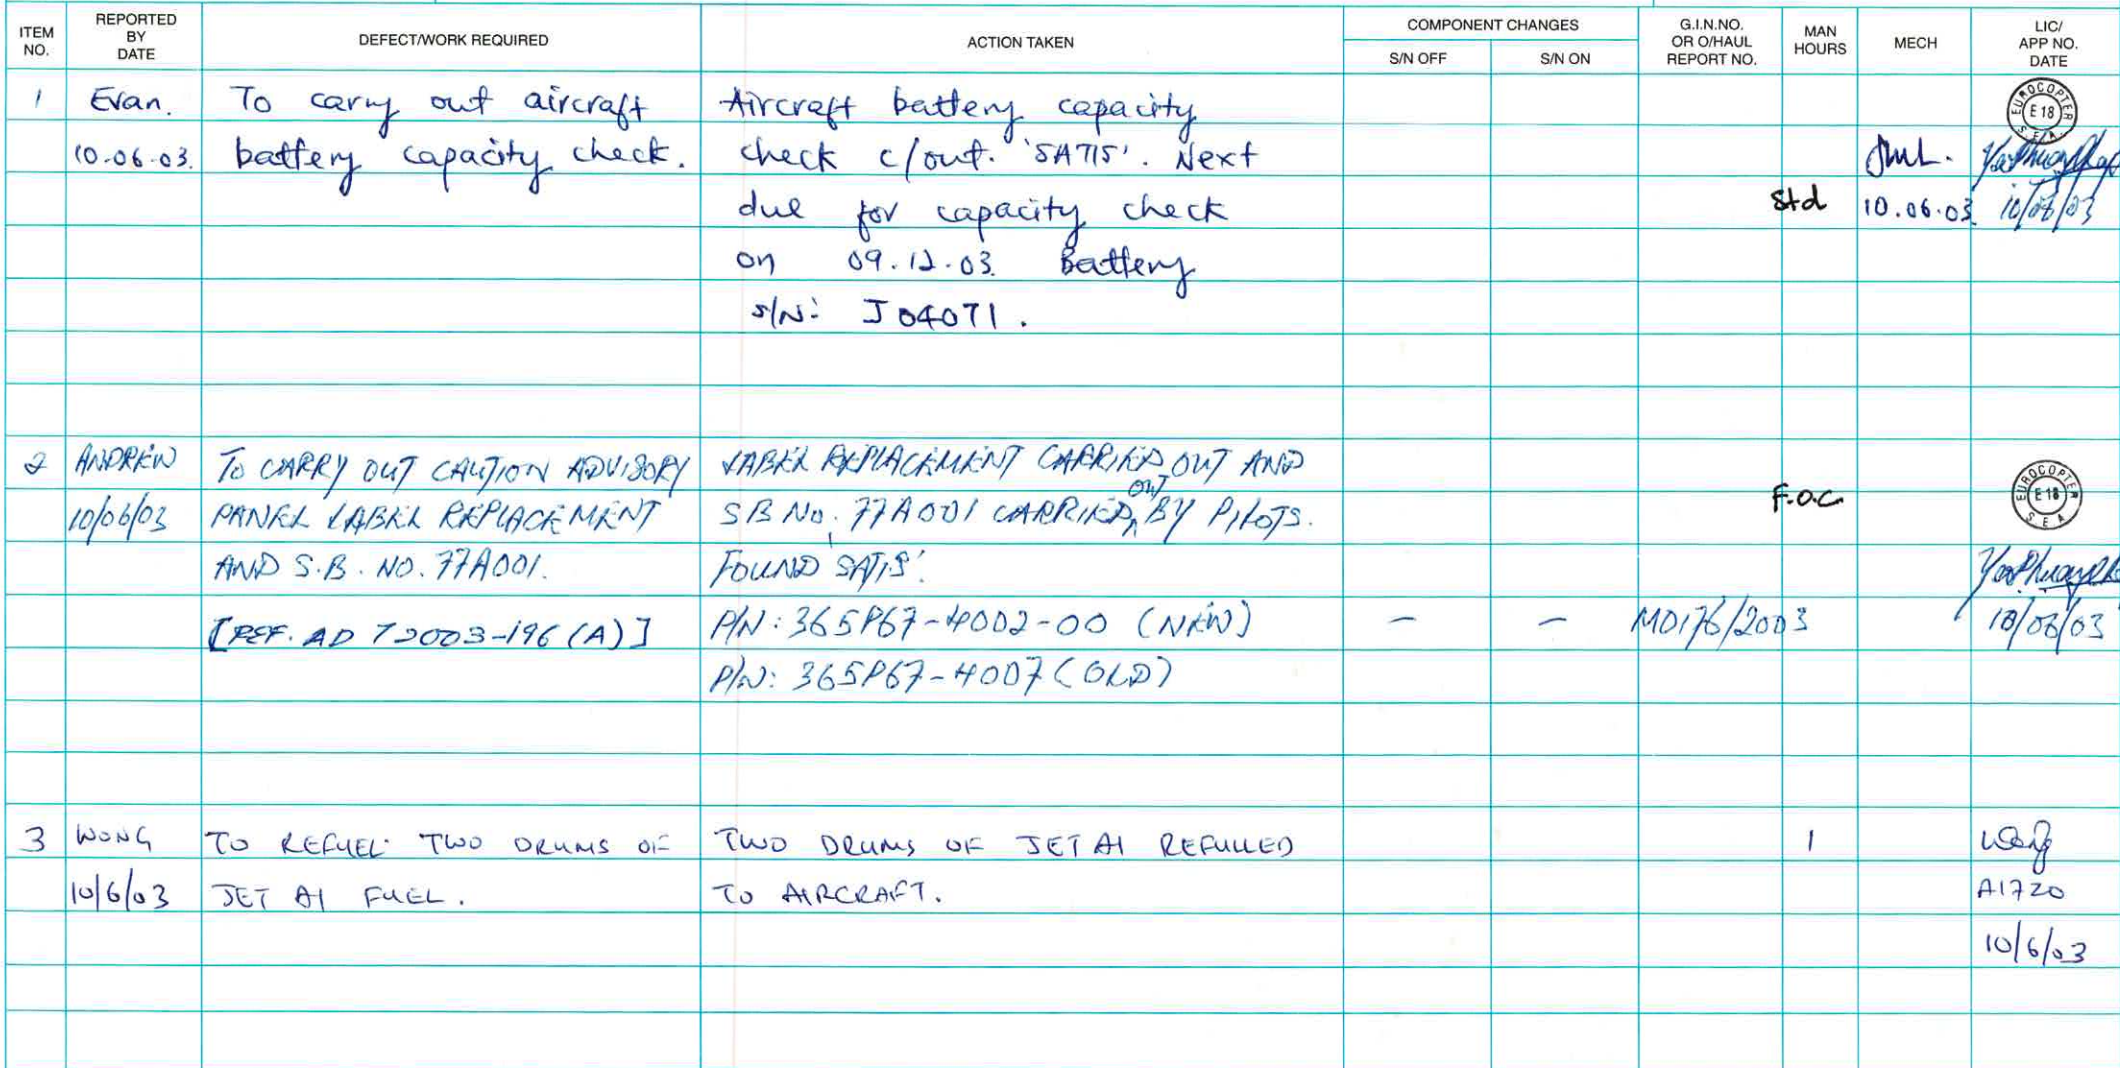 ITEM NO.
REPORTED BY DATE
DEFECT/WORK REQUIRED
ACTION TAKEN
COMPONENT CHANGES
S/N OFF
S/N ON
G.I.N.NO. OR O/HAUL REPORT NO.
MAN HOURS
MECH
LIC/ APP NO. DATE
1
Evan.
10.06.03.
To carry out aircraft
battery capacity check.
Aircraft battery capacity
check c/out. 'SATIS'. Next
due for capacity check
on 09.12.03. Battery
S/N: J04071.
Std
10.06.03
EUROCOPTER
E 18
S.E.A.
10/06/03
2
ANDREW
10/06/03
TO CARRY OUT CAUTION ADVISORY
PANEL LABEL REPLACEMENT
AND S.B. NO. 77A001.
[REF. AD T2003-196 (A)]
LABEL REPLACEMENT CARRIED OUT AND
SB No. 77A001 CARRIED OUT BY PILOTS.
FOUND 'SATIS'.
P/N: 365P67-4002-00 (NEW)
P/N: 365P67-4007 (OLD)
-
-
MD176/2003
F.O.C
EUROCOPTER
E 18
S E A
10/06/03
3
WONG
10/6/03
TO REFUEL TWO DRUMS OF
JET A1 FUEL.
TWO DRUMS OF JET A1 REFULLED
TO AIRCRAFT.
1
Wong
A1720
10/6/03